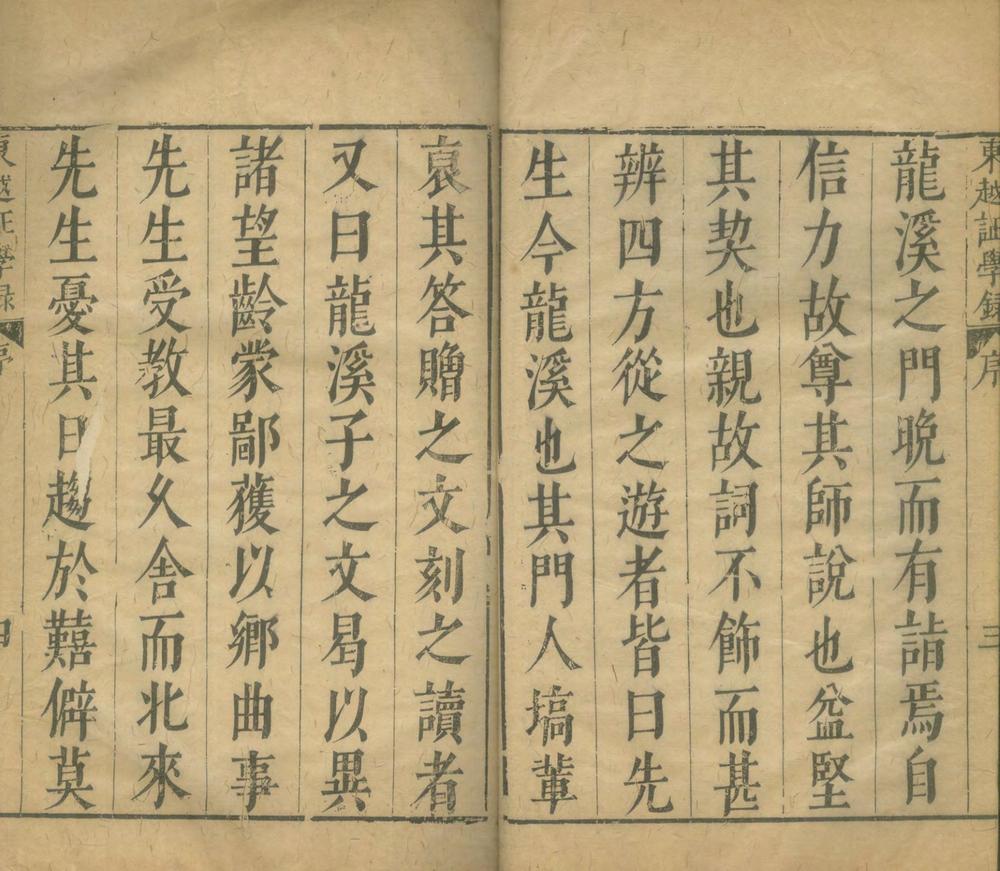 東越証學錄 序 三
龍溪之門晩而有詣焉自
信力故尊其師說也益堅
其契也親故詞不飾而甚
辨四方從之遊者皆曰先
生今龍溪也其門人塙輩
哀其答贈之文刻之讀者
又曰龍溪子之文曷以異
諸望齡蒙鄙獲以鄉曲事
先生受教最久舍而北來
先生憂其日趨於囏僻莫
東越証學錄 序 四